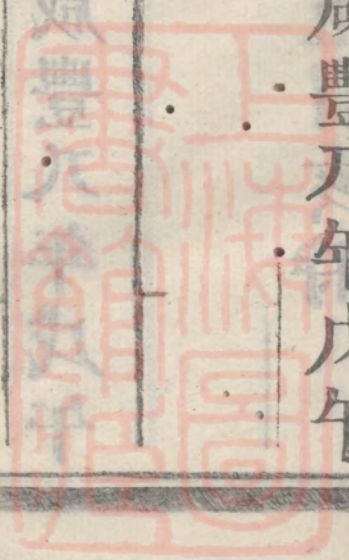 咸豐八年戊午
上海圖
書館藏